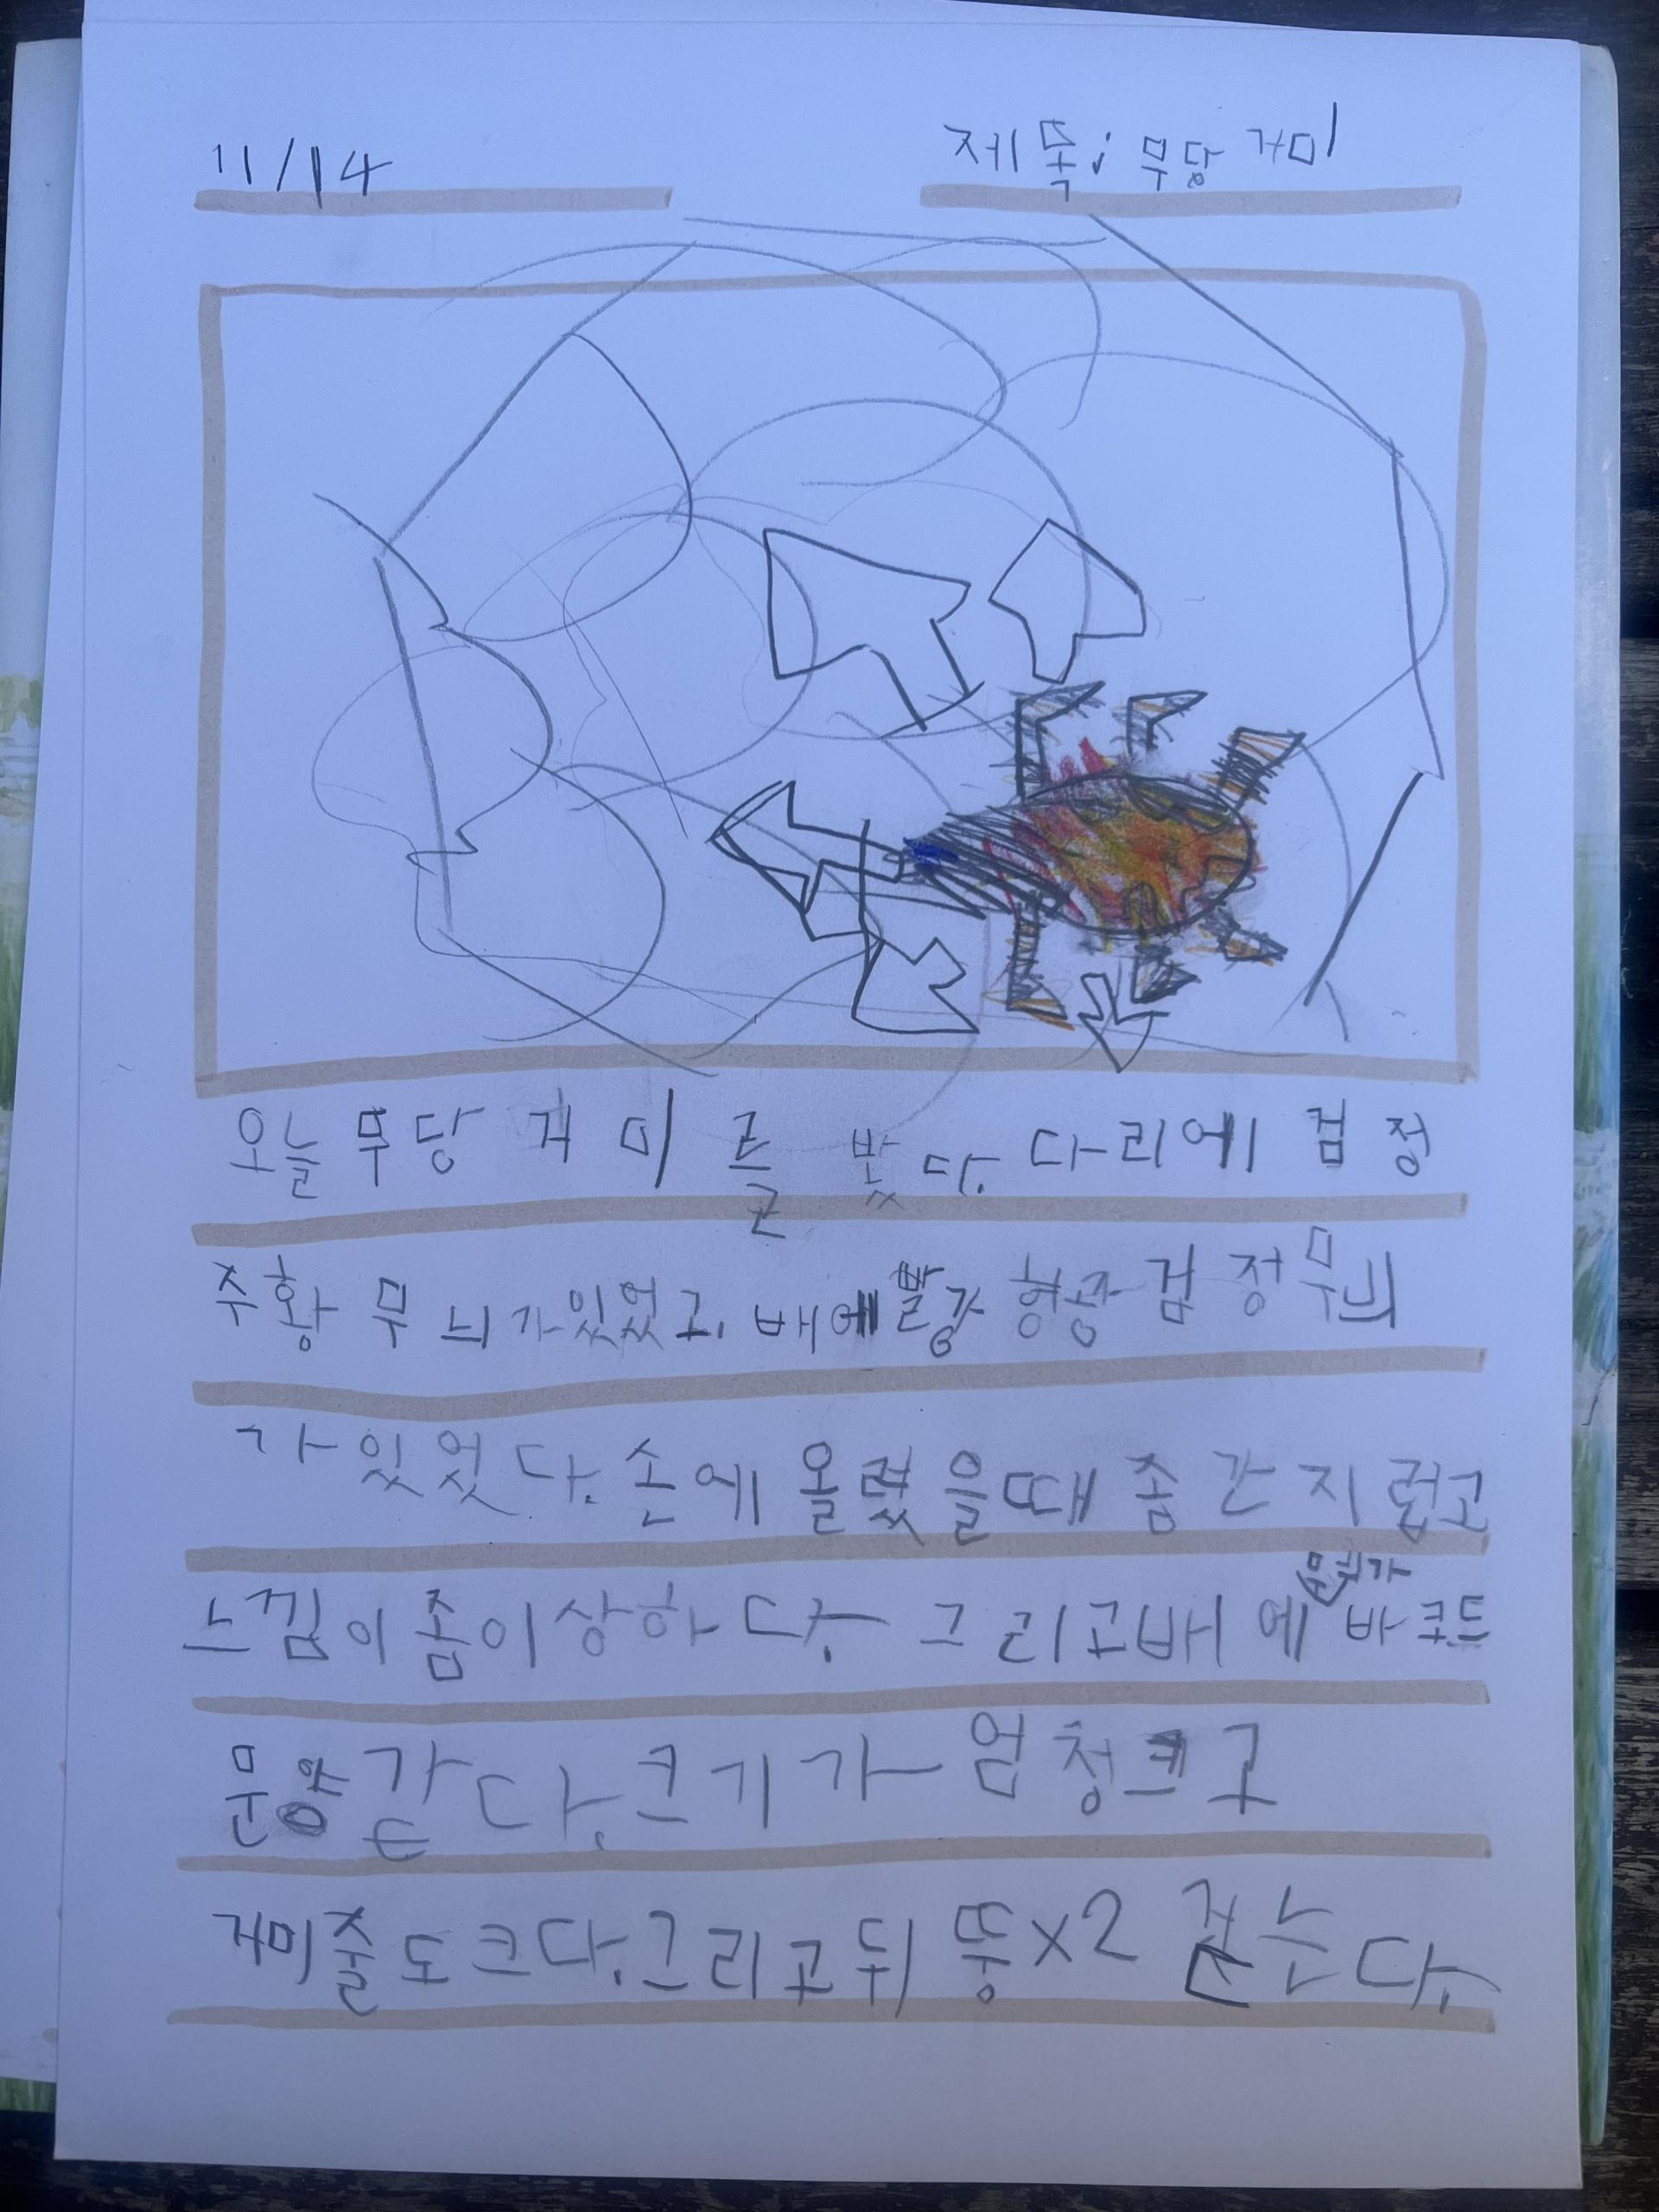 11/14
제목: 무당거미
오늘 무당 거미를 봤다. 다리에 검정
주황 무늬가 있었고. 배에 빨강 형광 검정 무늬
가 있었다. 손에 올렸을때 좀 간지럽고
느낌이 좀 이상하다. 그리고 배에
무늬가
바코드
문양 같다. 크기가 엄청 크고
거미줄도 크다. 그리고 뒤뚱x2 걷는다.